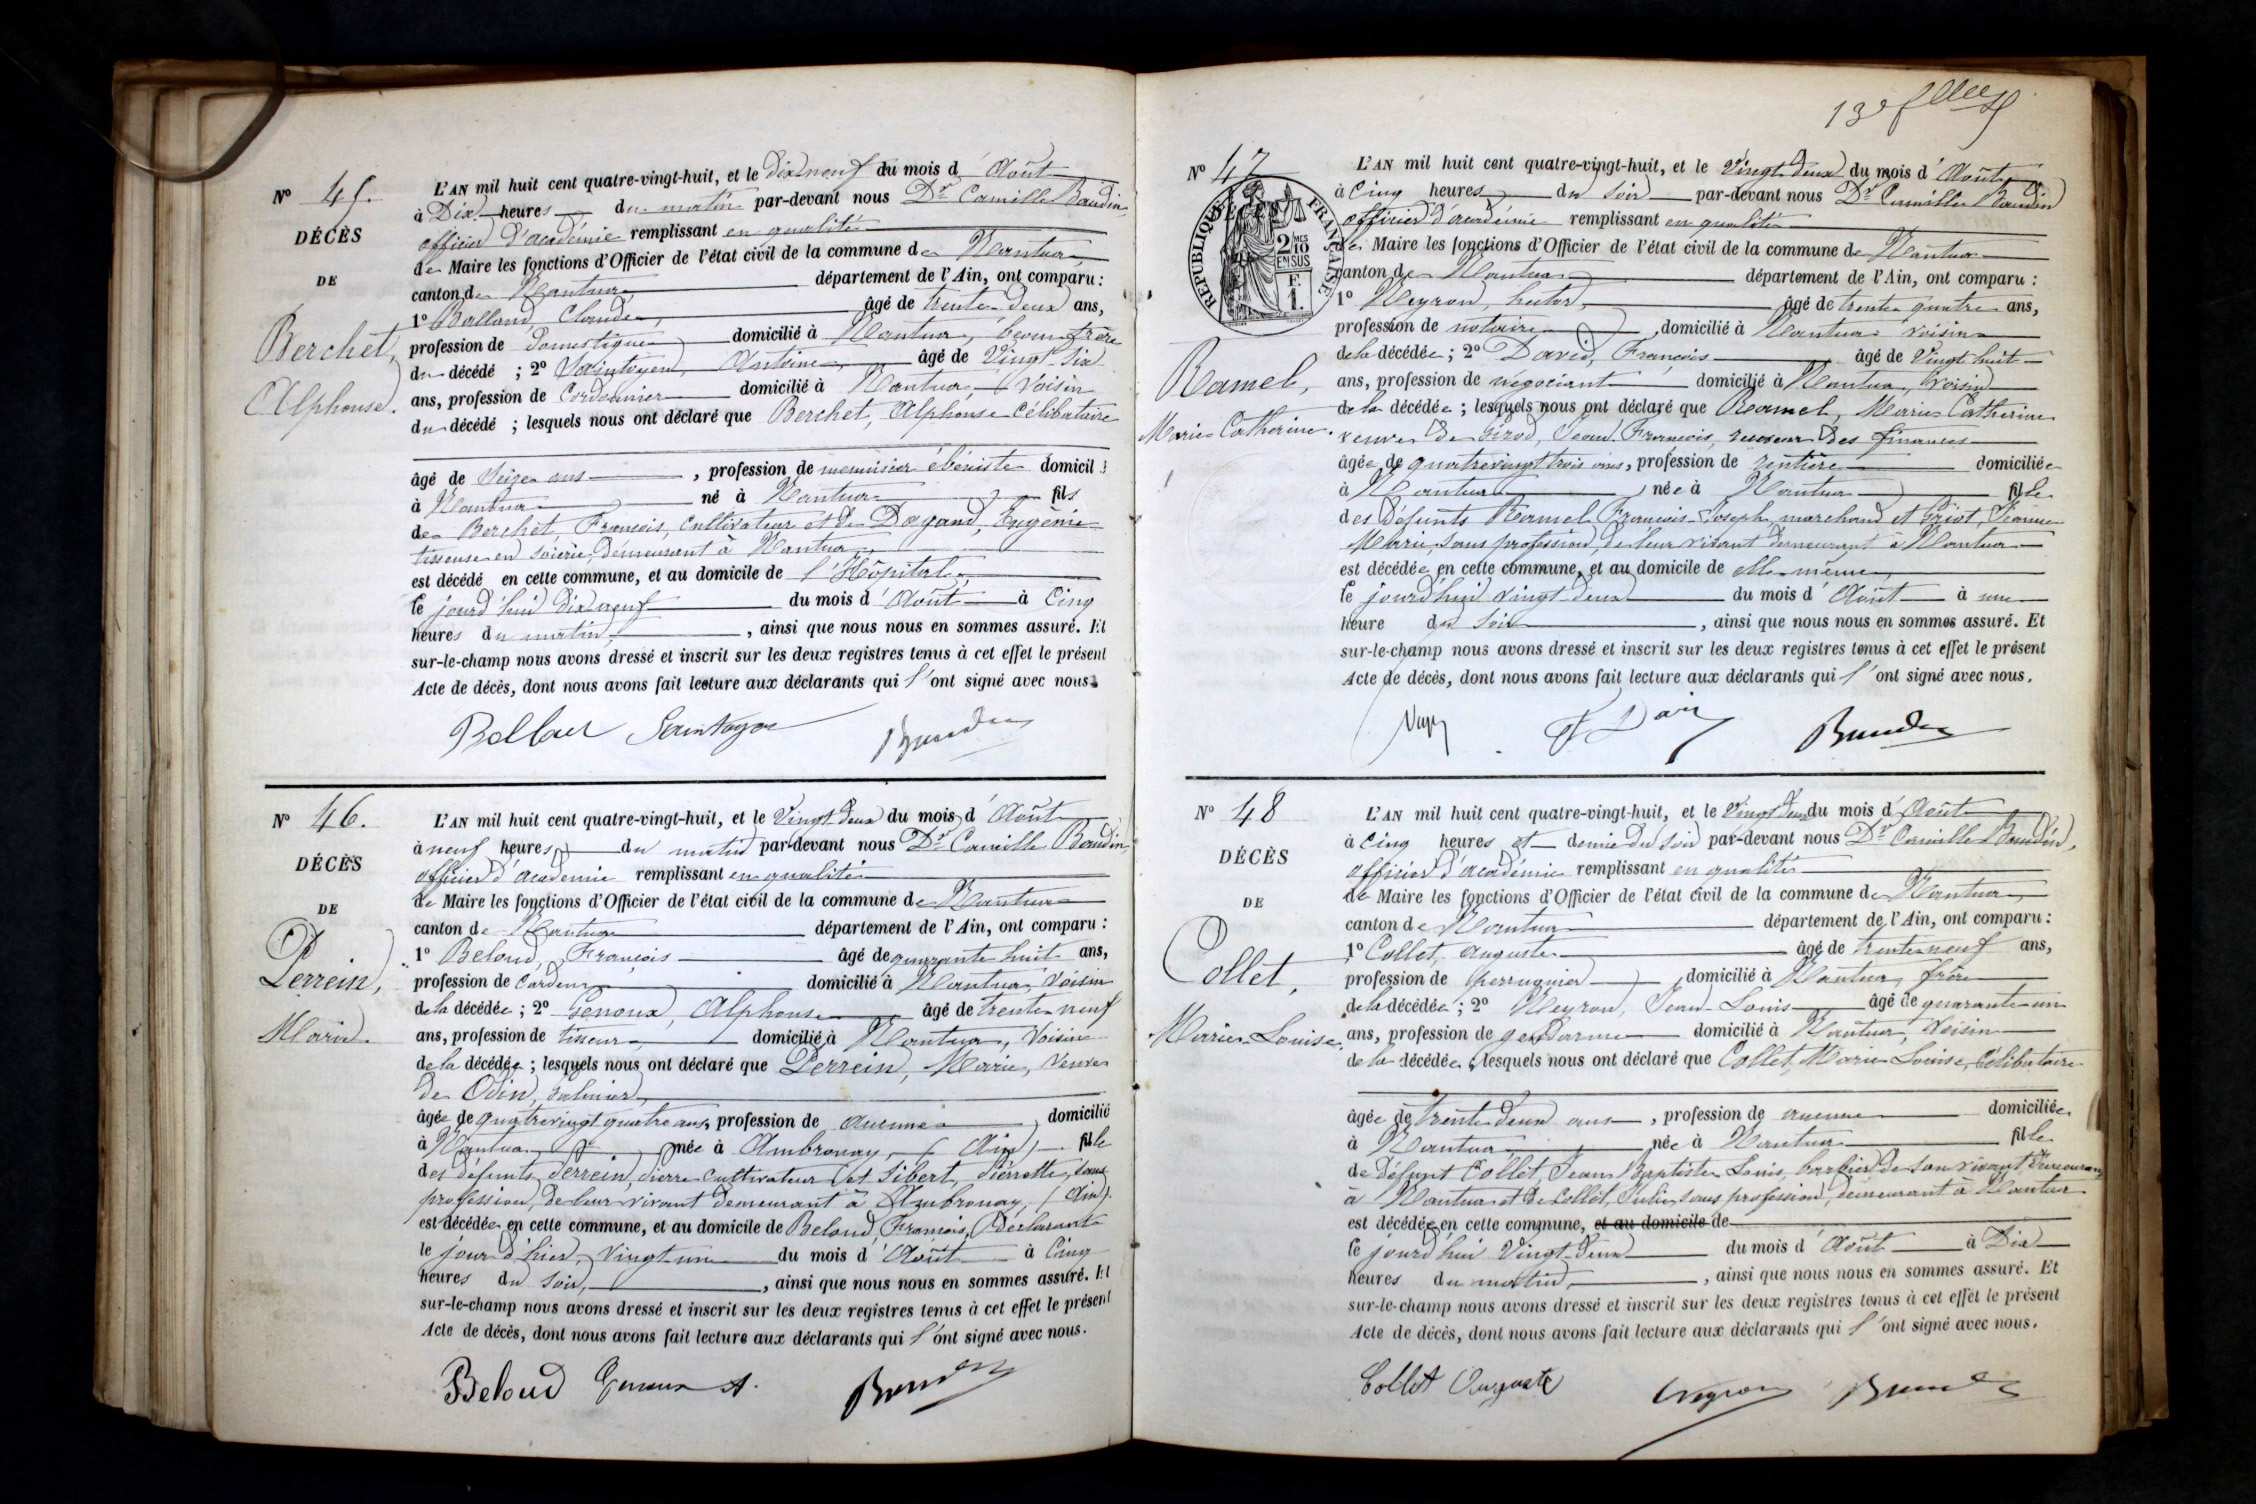 Nº 45.
DÉCÈS
DE
Berchet,
Alphonse.
L'AN mil huit cent quatre-vingt-huit, et le Dix neuf du mois d'Août
à Dix heures du matin par-devant nous Dr Camille Baudin,
officier d'académie remplissant en qualité
de Maire les fonctions d'Officier de l'état civil de la commune de Nantua
canton de Nantua département de l'Ain, ont comparu :
1º Balland, Claude, âgé de trente deux ans,
profession de domestique domicilié à Nantua, beau frère
du décédé ; 2º Antoine, âgé de Vingt Six
ans, profession de Cordonnier domicilié à Nantua, Voisin
du décédé ; lesquels nous ont déclaré que Berchet, Alphonse Célibataire
âgé de Seize ans, profession de menuisier ébéniste domicil
à Nantua né à Nantua fils
de Berchet, François, cultivateur et de Dagand, Eugénie
tisseuse en soierie, demeurant à Nantua
est décédé en cette commune, et au domicile de l'Hôpital,
le jourd'hui dix neuf du mois d'Août à Cinq
heures du matin, ainsi que nous nous en sommes assuré. Et
sur-le-champ nous avons dressé et inscrit sur les deux registres tenus à cet effet le présent
Acte de décès, dont nous avons fait lecture aux déclarants qui l'ont signé avec nous.
Nº 46.
DÉCÈS
DE
Perrein,
Marie.
L'AN mil huit cent quatre-vingt-huit, et le Vingt deux du mois d'Août
à neuf heures du matin par-devant nous Dr Camille Baudin,
officier d'académie remplissant en qualité
de Maire les fonctions d'Officier de l'état civil de la commune de Nantua
canton de Nantua département de l'Ain, ont comparu :
1º Beloud, François âgé de quarante huit ans,
profession de Cardeur domicilié à Nantua, Voisin
de la décédée ; 2º Genoux, Alphonse âgé de trente neuf
ans, profession de tisseur, domicilié à Nantua, Voisin
de la décédée ; lesquels nous ont déclaré que Perrein, Marie, Veuve
de Odin,
âgée de quatrevingt quatre ans, profession de aucune domicilié
à Nantua née à Ambronay, (Ain) fille
des défunts Perrein, Pierre cultivateur et Sibert, Pierrette, sans
profession, de leur vivant demeurant à Ambronay, (Ain).
est décédée en cette commune, et au domicile de Beloud, François, Déclarant
le jour d'hier, Vingt un du mois d'Août à Cinq
heures du soir, ainsi que nous nous en sommes assuré. Et
sur-le-champ nous avons dressé et inscrit sur les deux registres tenus à cet effet le présent
Acte de décès, dont nous avons fait lecture aux déclarants qui l'ont signé avec nous.
Beloud Genoux A. Baudin
Nº 47
REPUBLIQUE FRANÇAISE
2 MES 10 EN SUS
1 F.
Ramel,
Marie Catherine.
L'AN mil huit cent quatre-vingt-huit, et le Vingt Deux du mois d'Août
à Cinq heures du soir par-devant nous Dr Camille Baudin
officier d'académie remplissant en qualité
de Maire les fonctions d'Officier de l'état civil de la commune de Nantua
canton de Nantua département de l'Ain, ont comparu :
1º Neyron, hector, âgé de trente quatre ans,
profession de notaire, domicilié à Nantua voisin
de la décédée ; 2º David, François âgé de Vingt huit
ans, profession de négociant domicilié à Nantua, Voisin
de la décédée ; lesquels nous ont déclaré que Ramel, Marie Catherine
veuve de Girod, Jean François, receveur des finances
âgée de quatrevingt trois ans, profession de rentière domiciliée
à Nantua née à Nantua fille
des Défunts Ramel François-Joseph marchand et Griot, Jeanne
Marie, sans profession, de leur vivant demeurant à Nantua
est décédée en cette commune, et au domicile de elle même,
le jourd'hui vingt-deux du mois d'Août à une
heure du soir, ainsi que nous nous en sommes assuré. Et
sur-le-champ nous avons dressé et inscrit sur les deux registres tenus à cet effet le présent
Acte de décès, dont nous avons fait lecture aux déclarants qui l'ont signé avec nous.
Nº 48
DÉCÈS
DE
Collet,
Marie Louise.
L'AN mil huit cent quatre-vingt-huit, et le Vingt deux du mois d'Août
à Cinq heures et demie du soir par-devant nous Dr Camille Baudin,
officier d'académie remplissant en qualité
de Maire les fonctions d'Officier de l'état civil de la commune de Nantua
canton de Nantua département de l'Ain, ont comparu :
1º Collet, auguste âgé de trente neuf ans,
profession de perruquier domicilié à Nantua, frère
de la décédée ; 2º Neyron, Jean-Louis âgé de quarante-un
ans, profession de gendarme domicilié à Nantua, Voisin
de la décédée lesquels nous ont déclaré que Collet, Marie Louise, Célibataire
âgée de trente deux ans, profession de aucune domiciliée
à Nantua, née à Nantua fille
de défunt Collet, Jean Baptiste Louis, barbier de son vivant demeurant
à Nantua et de Collet, Julie, sans profession, demeurant à Nantua
est décédée en cette commune, et au domicile de
le jourd'hui Vingt-deux du mois d'Août à Dix
heures du matin, ainsi que nous nous en sommes assuré. Et
sur-le-champ nous avons dressé et inscrit sur les deux registres tenus à cet effet le présent
Acte de décès, dont nous avons fait lecture aux déclarants qui l'ont signé avec nous.
Collet Auguste Neyron Baudin